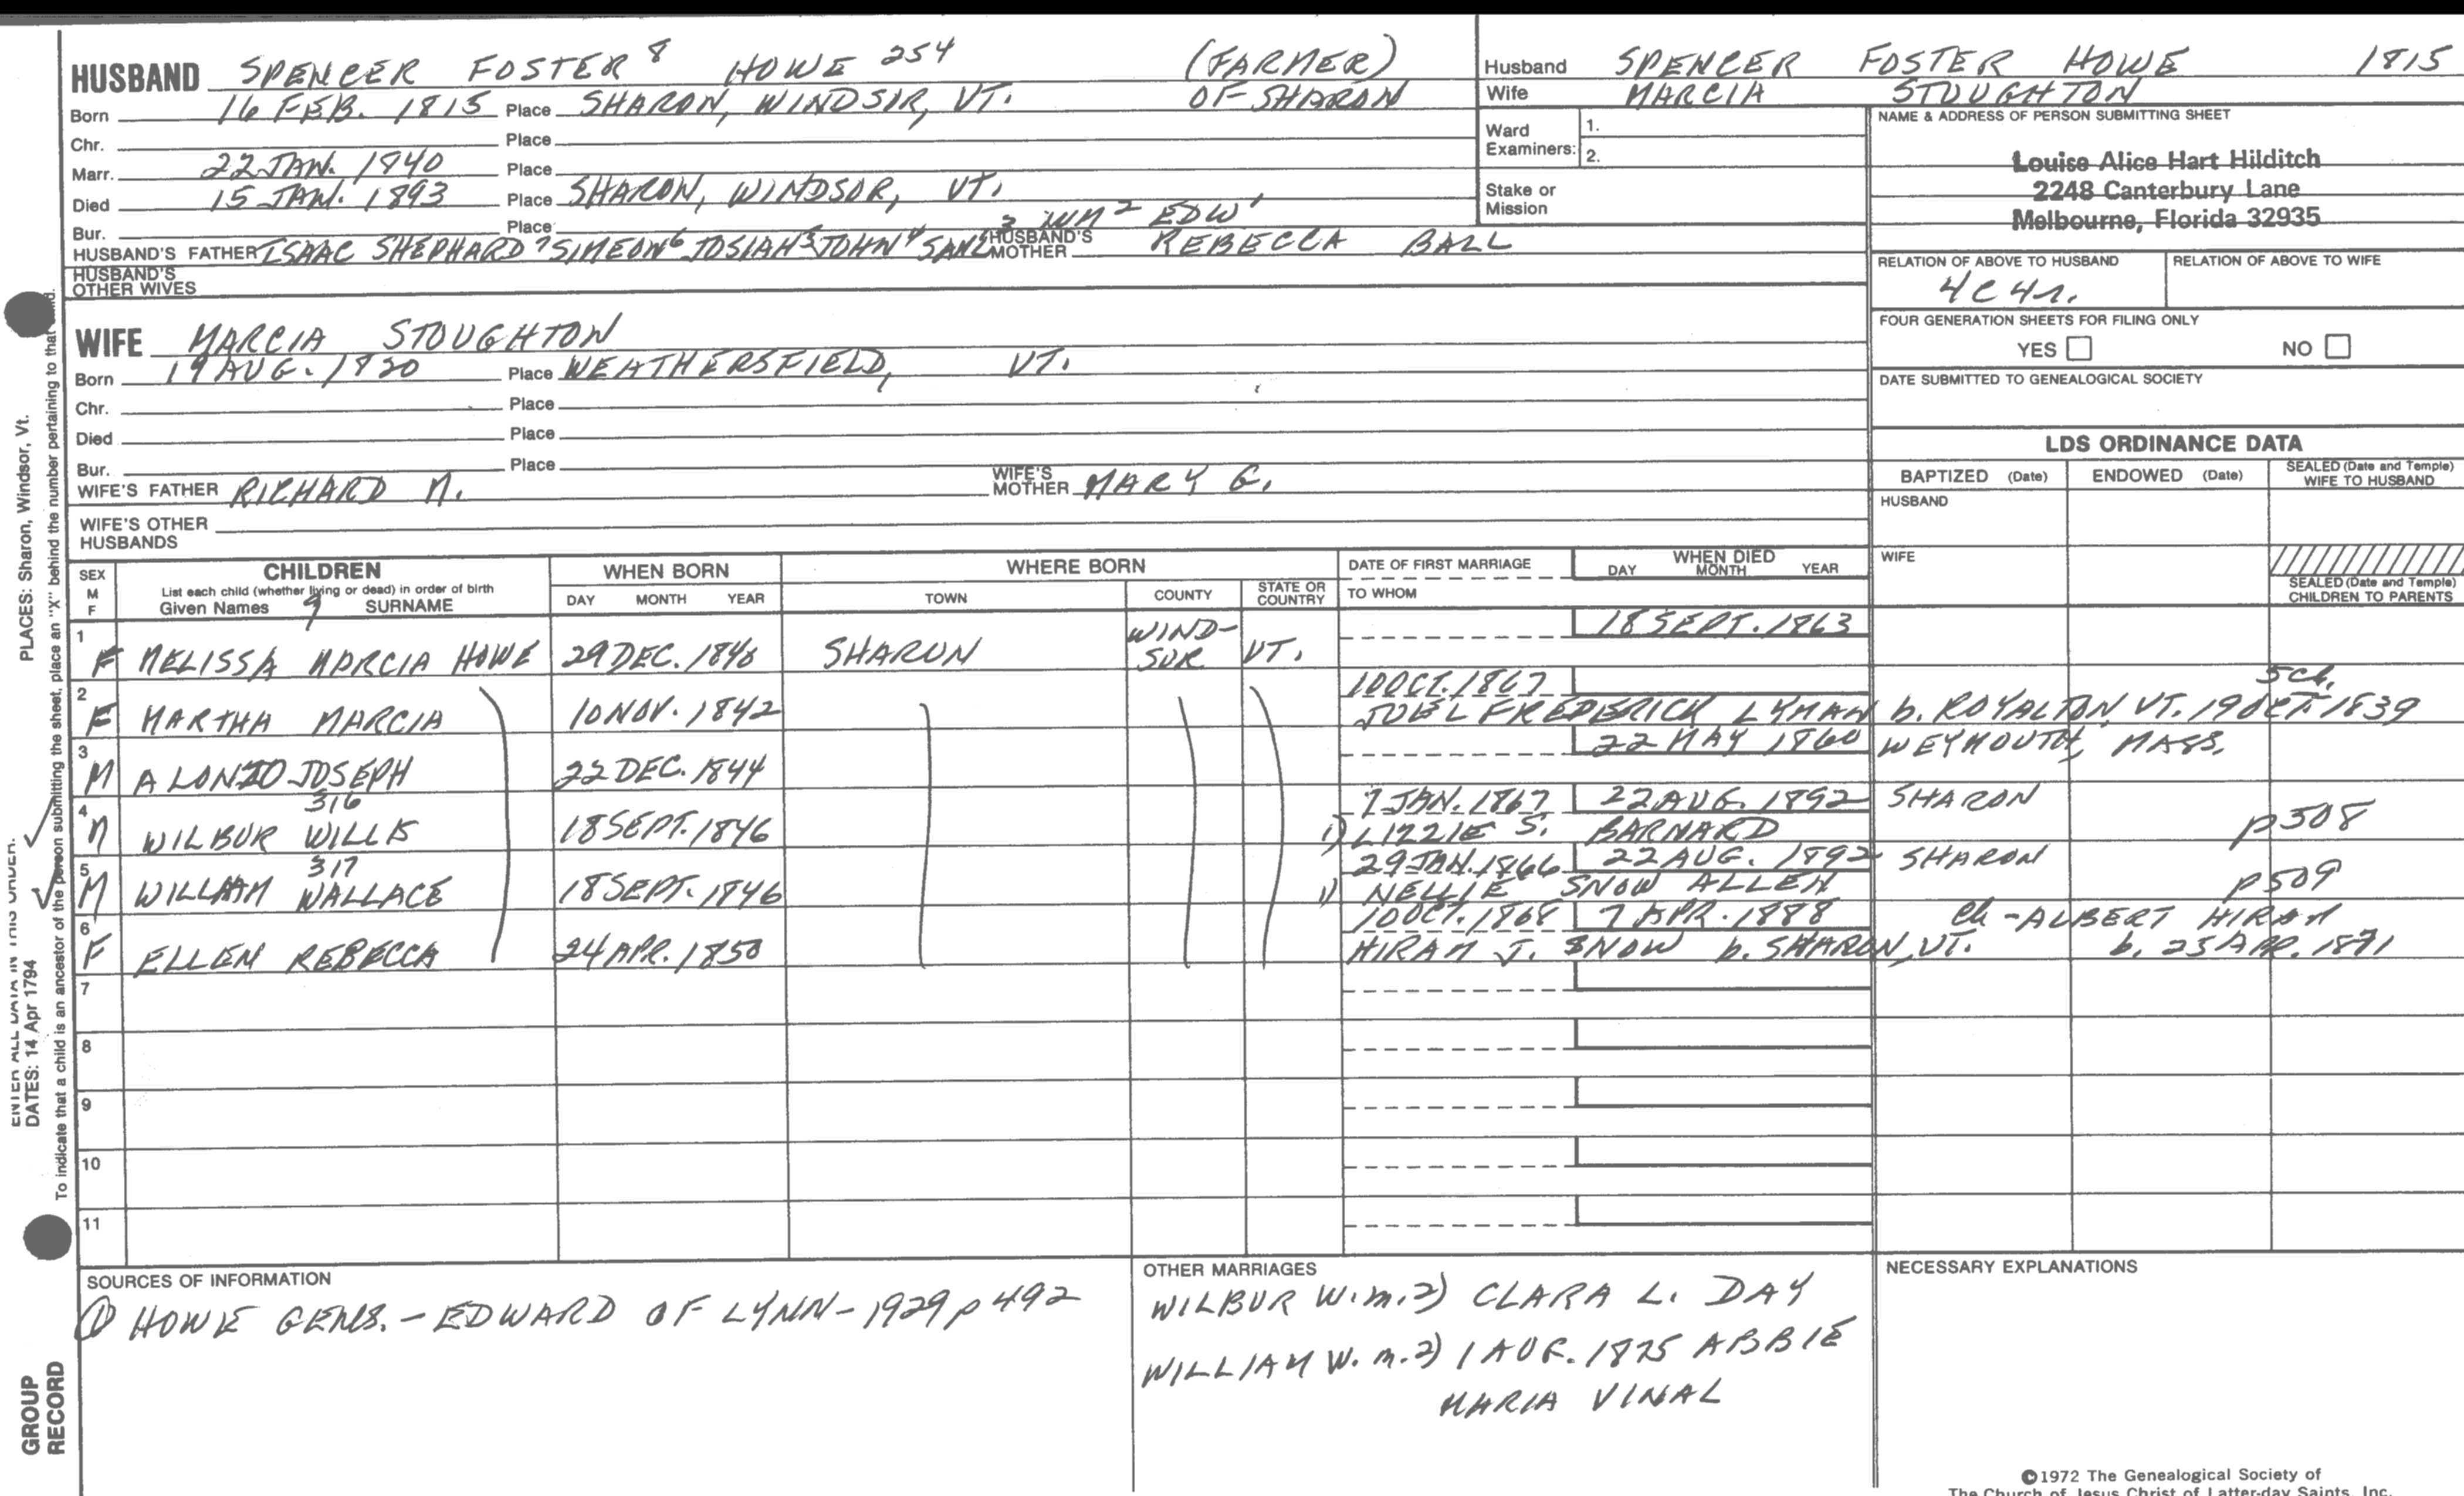 HUSBAND SPENCER FOSTER 8 HOWE 254 (FARMER)
Born 16 FEB. 1815 Place SHARON, WINDSOR, VT. OF SHARON
Chr. Place
Marr. 22 JAN. 1840 Place
Died 15 JAN. 1893 Place SHARON, WINDSOR, VT.
Bur. Place 3 WM 2 EDW 1
HUSBAND'S FATHER ISAAC SHEPHARD 7 SIMEON 6 JOSIAH 5 JOHN 4 SAML HUSBAND'S MOTHER REBECCA BALL
HUSBAND'S OTHER WIVES
WIFE MARCIA STOUGHTON
Born 19 AUG. 1820 Place WEATHERSFIELD, VT.
Chr. Place
Died Place
Bur. Place
WIFE'S FATHER RICHARD M. WIFE'S MOTHER MARY G.
WIFE'S OTHER HUSBANDS
Husband SPENCER FOSTER HOWE 1815
Wife MARCIA STOUGHTON
Ward Examiners: 1.
2.
Stake or Mission
NAME & ADDRESS OF PERSON SUBMITTING SHEET
Louise Alice Hart Hilditch
2248 Canterbury Lane
Melbourne, Florida 32935
RELATION OF ABOVE TO HUSBAND RELATION OF ABOVE TO WIFE
4C4r.
FOUR GENERATION SHEETS FOR FILING ONLY
YES NO
DATE SUBMITTED TO GENEALOGICAL SOCIETY
LDS ORDINANCE DATA
BAPTIZED (Date) ENDOWED (Date) SEALED (Date and Temple) WIFE TO HUSBAND
HUSBAND
WIFE
SEALED (Date and Temple) CHILDREN TO PARENTS
SEX M F CHILDREN WHEN BORN WHERE BORN DATE OF FIRST MARRIAGE WHEN DIED
List each child (whether living or dead) in order of birth
Given Names 9 SURNAME DAY MONTH YEAR TOWN COUNTY STATE OR COUNTRY TO WHOM DAY MONTH YEAR
18 SEPT. 1863
1 F MELISSA MARCIA HOWE 29 DEC. 1840 SHARON WIND-SOR VT.
10 OCT. 1867 5 ch.
2 F MARTHA MARCIA 10 NOV. 1842 JOEL FREDERICK LYMAN b. ROYALTON, VT. 19 OCT. 1839
22 MAY 1860 WEYMOUTH, MASS.
3 M ALONZO JOSEPH 22 DEC. 1844
316 7 JAN. 1867 22 AUG. 1892 SHARON
4 M WILBUR WILLIS 18 SEPT. 1846 1) LIZZIE S. BARNARD p508
317 29 JAN. 1866 22 AUG. 1892 SHARON
5 M WILLIAM WALLACE 18 SEPT. 1846 1) NELLIE SNOW ALLEN p509
10 OCT. 1868 7 APR. 1888 Ch - ALBERT HIRAM
6 F ELLEN REBECCA 24 APR. 1850 HIRAM J. SNOW b. SHARON, VT. b. 25 APR. 1871
7
8
9
10
11
SOURCES OF INFORMATION
① HOWE GENS. - EDWARD OF LYNN - 1929 p 492
OTHER MARRIAGES
WILBUR W. m. 2) CLARA L. DAY
WILLIAM W. m. 2) 1 AUG. 1875 ABBIE
MARIA VINAL
NECESSARY EXPLANATIONS
©1972 The Genealogical Society of
The Church of Jesus Christ of Latter-day Saints, Inc.
PLACES: Sharon, Windsor, Vt.
ENTER ALL DATA IN THIS ORDER:
DATES: 14 Apr 1794
To indicate that a child is an ancestor of the person submitting the sheet, place an "X" behind the number pertaining to that child.
GROUP
RECORD